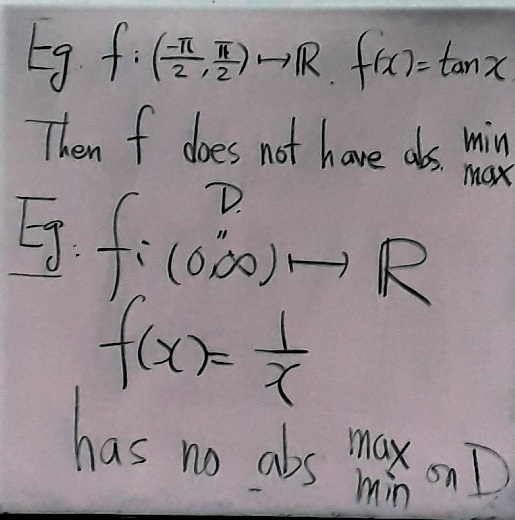 Eg. f: (-π/2, π/2) ↦ ℝ. f(x) = tan x.
Then f does not have abs. min max
D.
"
Eg: f: (0,∞) ↦ ℝ
f(x) = 1/x
has no abs max min on D